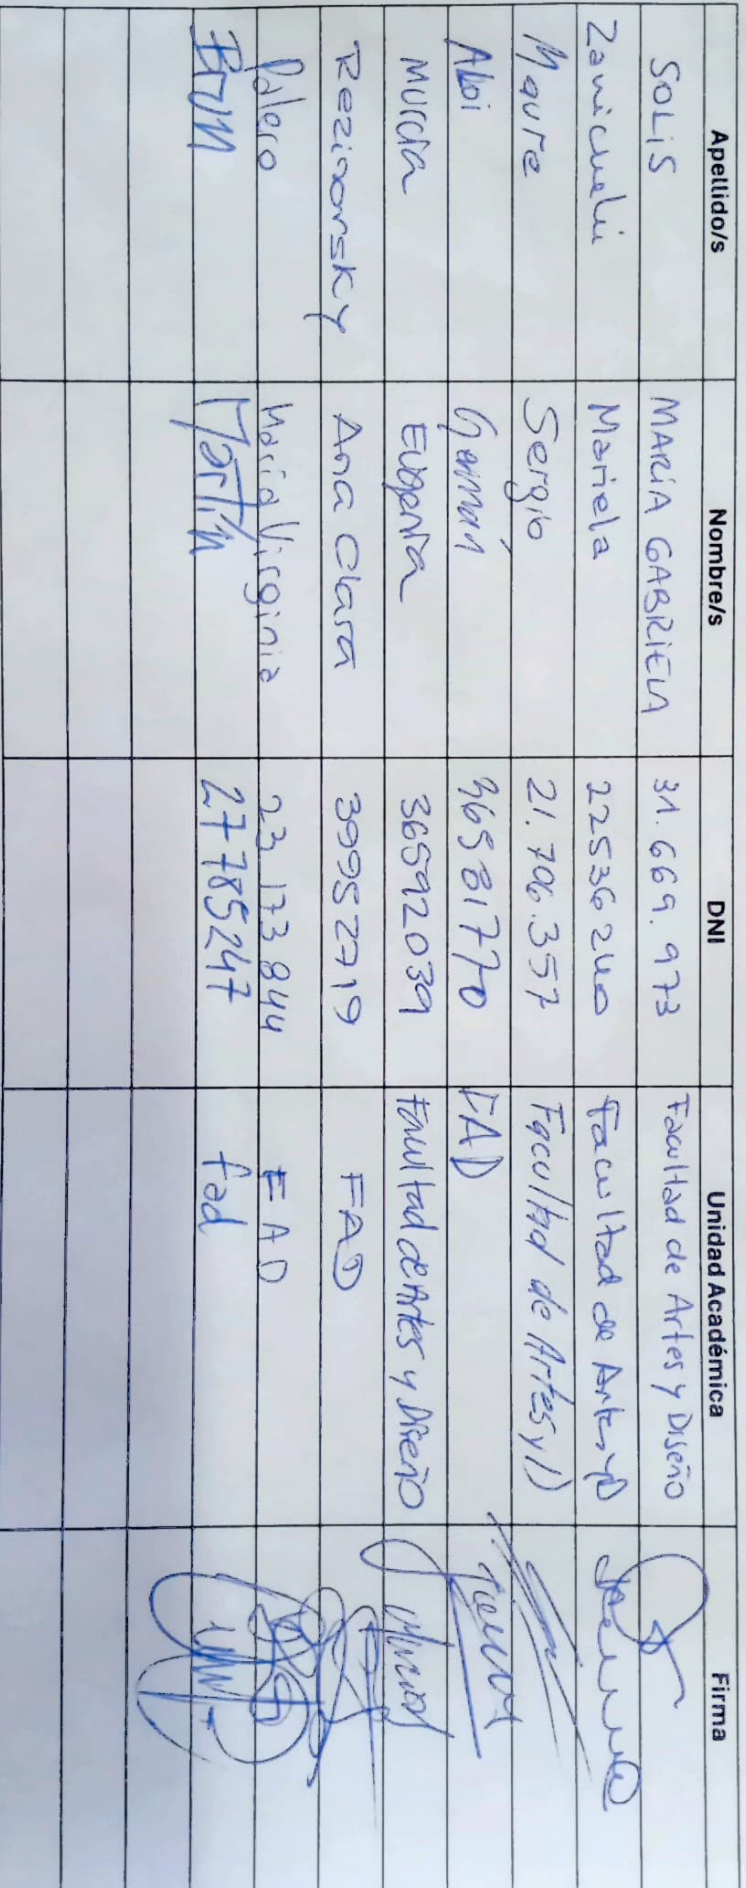 Apellido/s Nombre/s DNI Unidad Académica Firma
SOLIS MARÍA GABRIELA 31.669.973 Facultad de Artes y Diseño
Zanichelli Mariela 22536240 Facultad de Artes y D
Maure Sergio 21.706.357 Facultad de Artes y D
Aloi Germán 36581770 FAD
Murcia Eugenia 36592039 Facultad de Artes y Diseño
Rezinovsky Ana Clara 39952719 FAD
Palero María Virginia 23 173 844 FAD
Brum Martín 27785247 fad